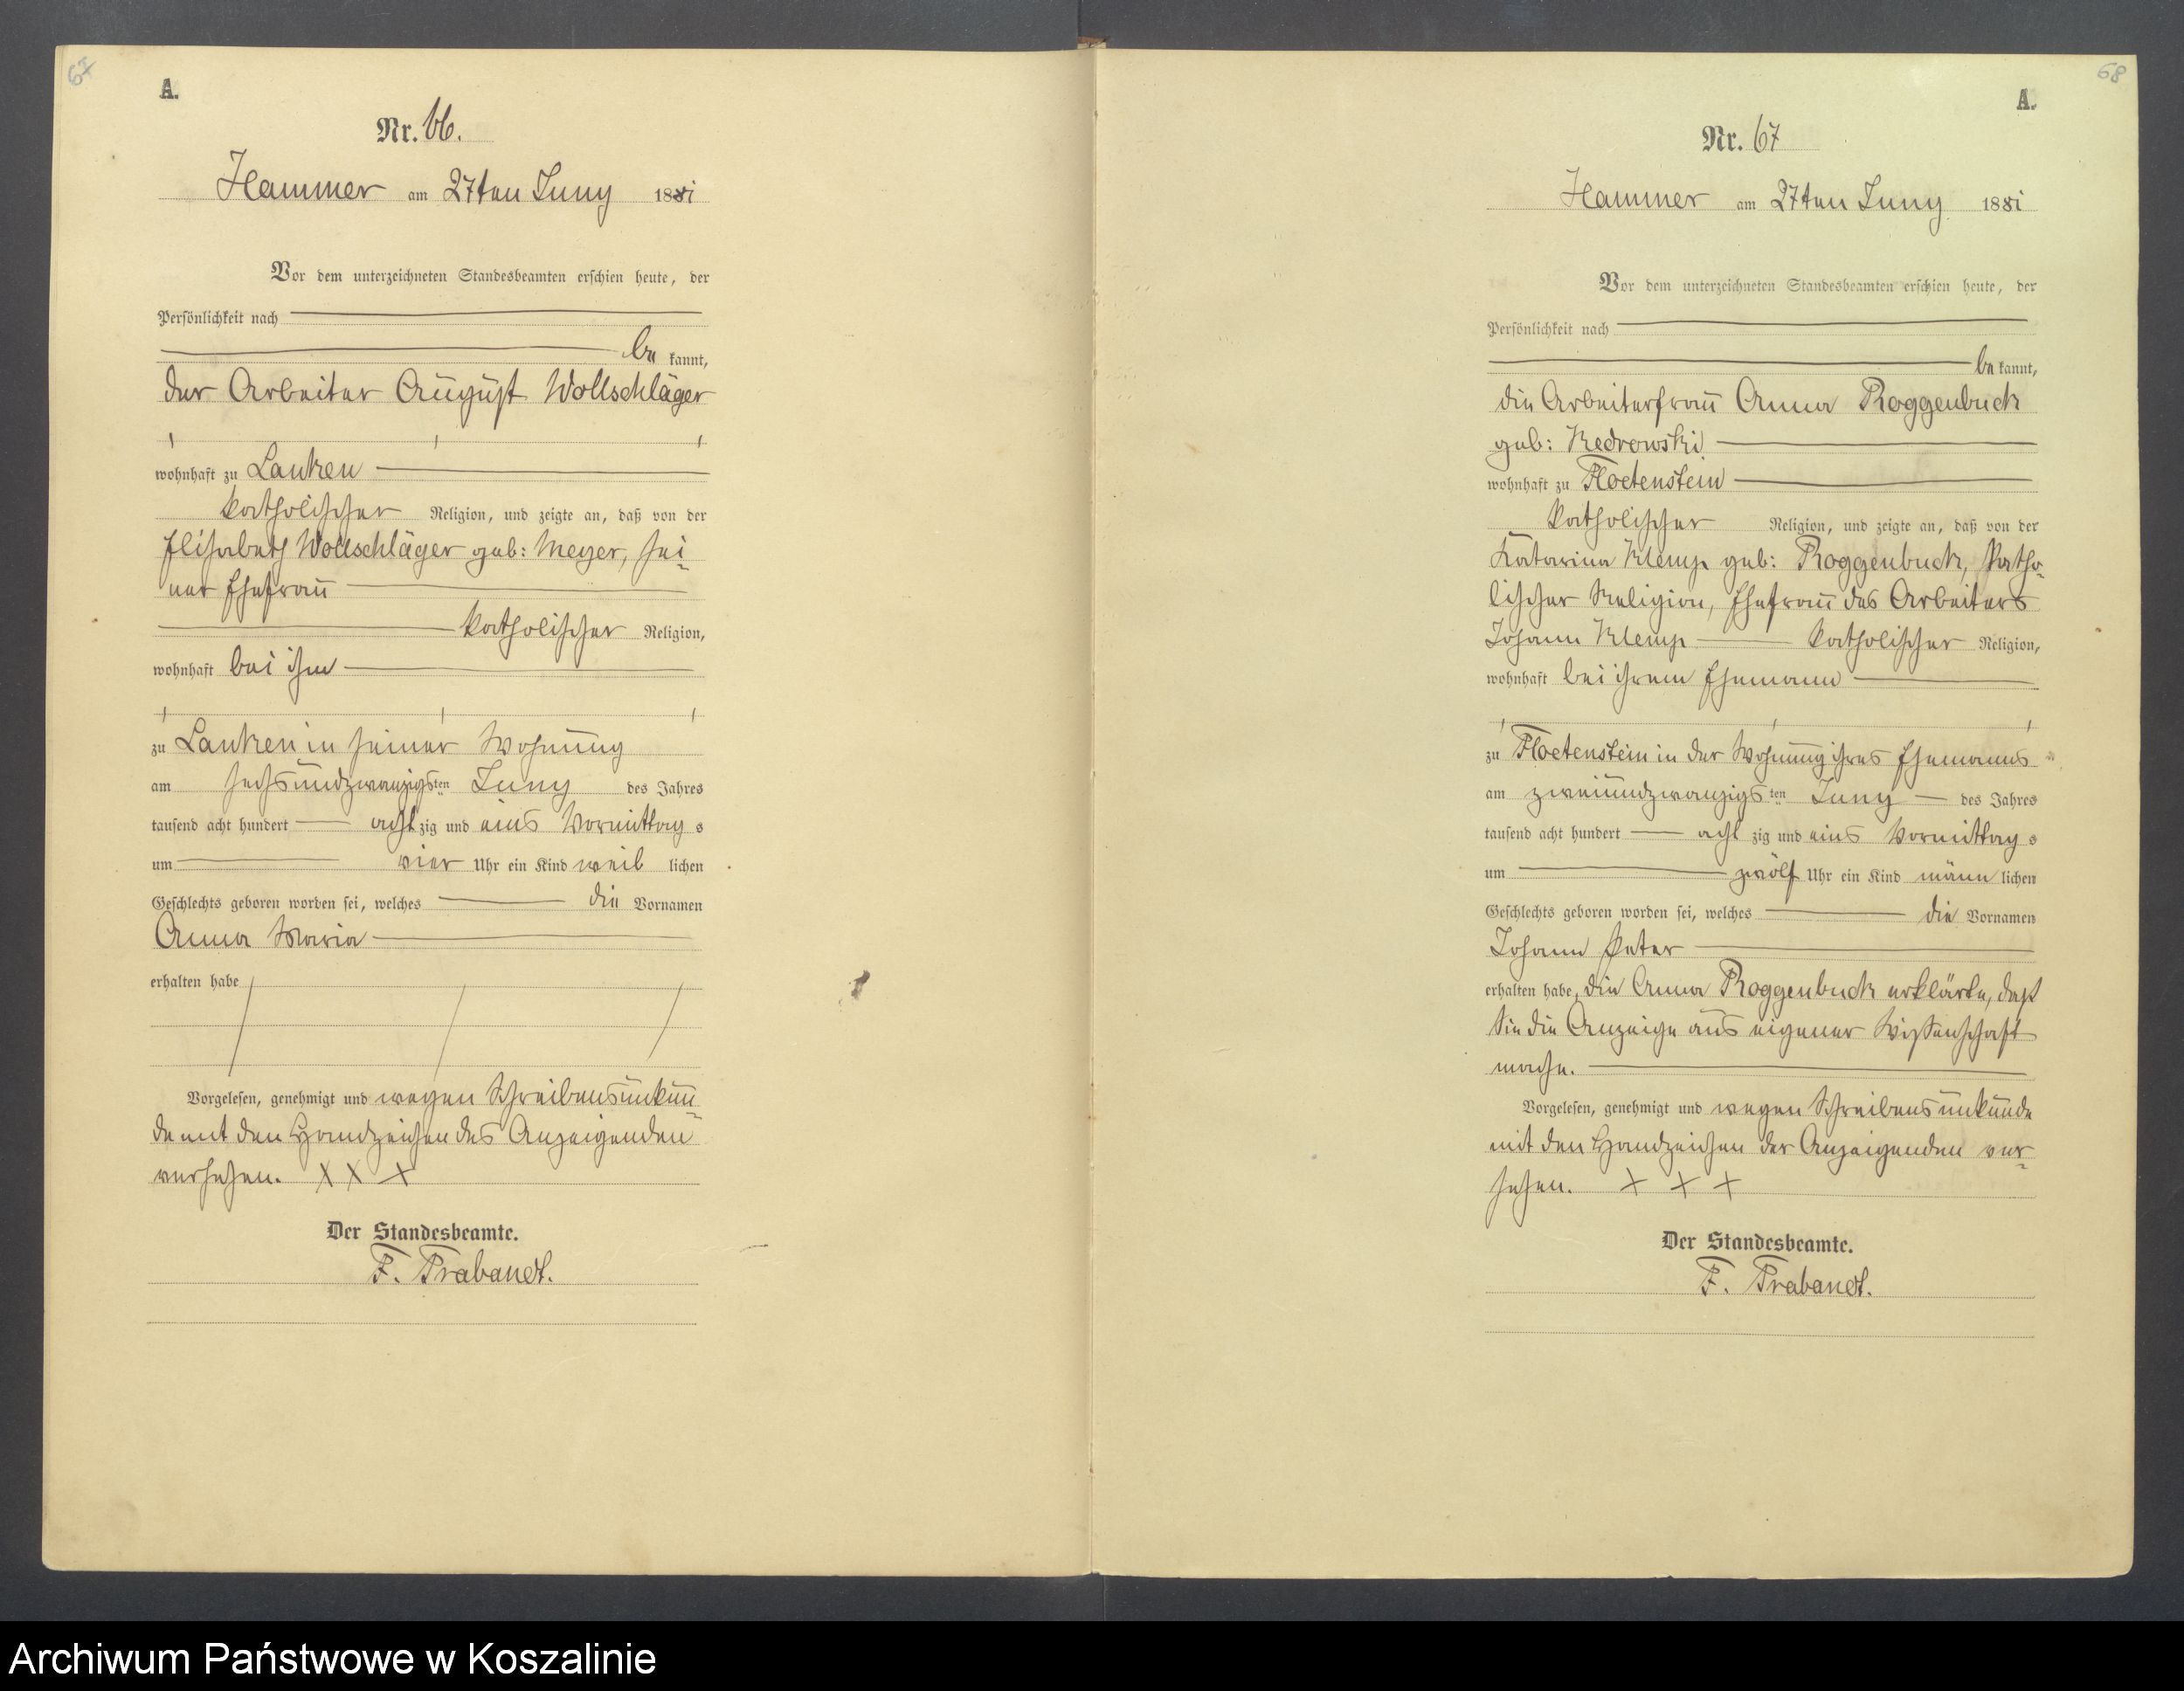 67
A.
Nr. 66.
Hammer am 27ten Juny 1881
Vor dem unterzeichneten Standesbeamten erschien heute, der
Persönlichkeit nach
be kannt,
der Arbeiter August Wollschläger
wohnhaft zu Lanken
katholischer Religion, und zeigte an, daß von der
Elisabeth Wollschläger geb: Meyer, sei-
ner Ehefrau
katholischer Religion,
wohnhaft bei ihm
zu Lanken in seiner Wohnung
am sechsundzwanzigsten Juny des Jahres
tausend acht hundert achtzig und eins Vormittags
um vier Uhr ein Kind weiblichen
Geschlechts geboren worden sei, welches die Vornamen
Anna Maria
erhalten habe
Vorgelesen, genehmigt und wegen Schreibensunkun-
de mit den Handzeichen des Anzeigenden
versehen. X X X
Der Standesbeamte.
F. Trabandt.
68
A.
Nr. 67
Hammer am 27ten Juny 1881
Vor dem unterzeichneten Standesbeamten erschien heute, der
Persönlichkeit nach
be kannt,
die Arbeiterfrau Anna Roggenbuck
geb: Kedrowski
wohnhaft zu Floetenstein
katholischer Religion, und zeigte an, daß von der
Katarina Klemp geb: Roggenbuck, katho-
lischer Religion, Ehefrau des Arbeiters
Johann Klemp katholischer Religion,
wohnhaft bei ihrem Ehemann
zu Floetenstein in der Wohnung ihres Ehemanns
am zweiundzwanzigsten Juny des Jahres
tausend acht hundert achtzig und eins Vormittags
um zwölf Uhr ein Kind männlichen
Geschlechts geboren worden sei, welches die Vornamen
Johann Peter
erhalten habe, die Anna Roggenbuck erklärte, daß
sie die Anzeige aus eigener Wissenschaft
mache.
Vorgelesen, genehmigt und wegen Schreibensunkunde
mit den Handzeichen der Anzeigenden ver-
sehen. X X X
Der Standesbeamte.
F. Trabandt.
Archiwum Państwowe w Koszalinie